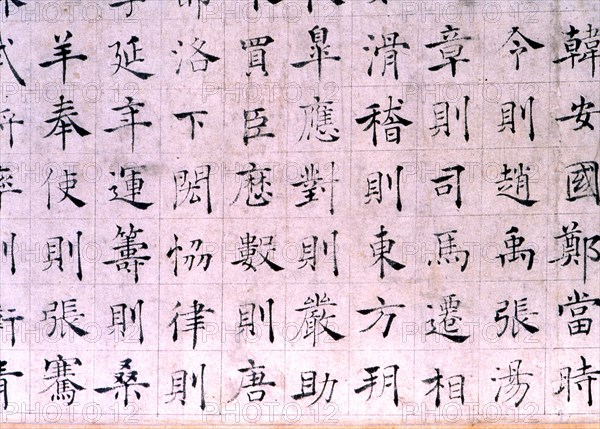 韓安國鄭當時
令則趙禹張湯
章則司馬遷相
滑稽則東方朔
皐應對則嚴助
買臣厯數則唐
洛下閎恊律則
延年運籌則桑
羊奉使則張騫
PHOTO12